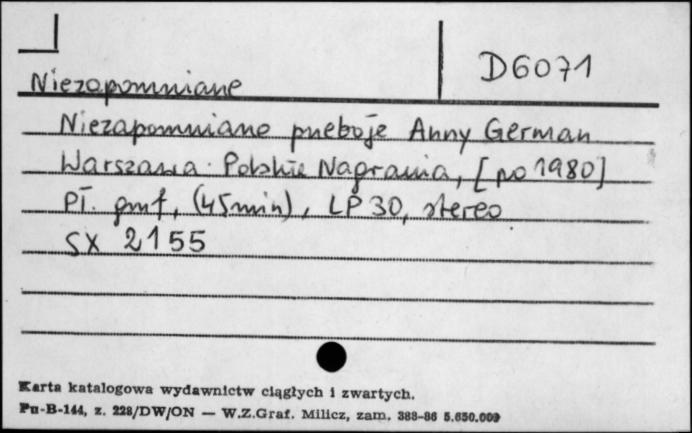 D6071
Niezapomniane
Niezapomniane pneboje Anny German
Warszawa: Polskie Nagrania, [po 1980]
Pł. gmf, (45min), LP 30, stereo
SX 2155
Karta katalogowa wydawnictw ciągłych i zwartych.
Pu-B-144, z. 228/DW/ON — W.Z.Graf. Milicz, zam. 388-86 5.650.000